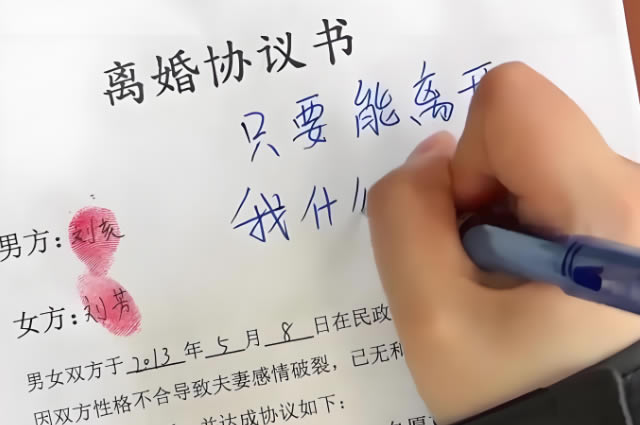 离婚协议书
只要能离开
我什
男方：刘亥
女方：刘芳
男女双方于2013年5月8日在民政
因双方性格不合导致夫妻感情破裂，已无和
并达成协议如下：